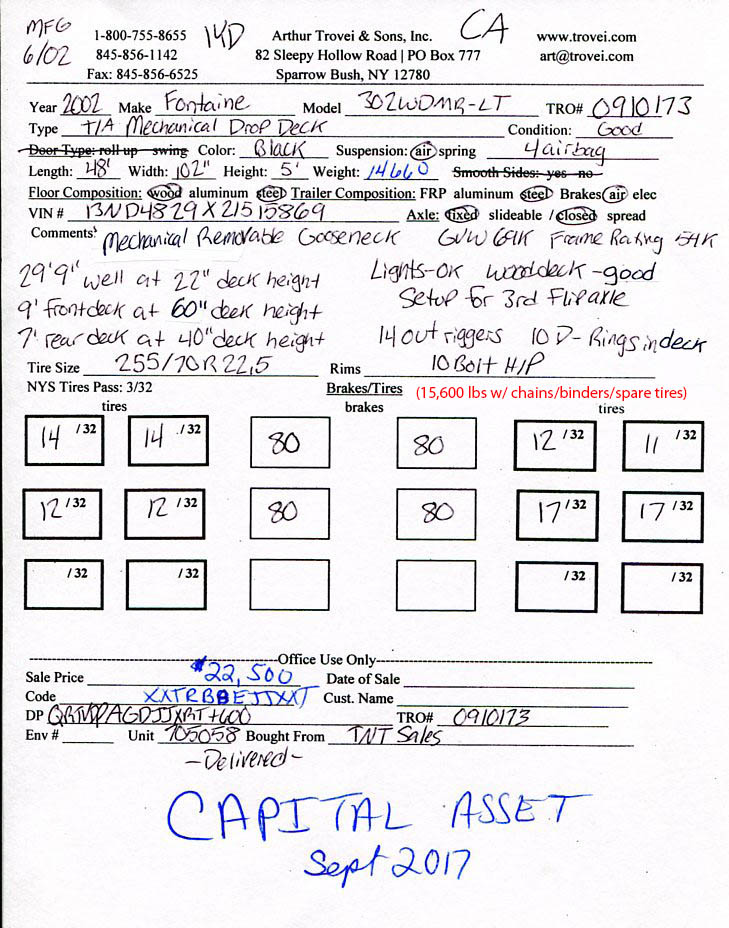 MFG 6/02
14D
CA
1-800-755-8655 Arthur Trovei & Sons, Inc. www.trovei.com
845-856-1142 82 Sleepy Hollow Road | PO Box 777 art@trovei.com
Fax: 845-856-6525 Sparrow Bush, NY 12780
Year 2002 Make Fontaine Model 302WDMR-LT TRO# 0910173
Type T/A Mechanical Drop Deck Condition: Good
Door Type: roll up swing Color: Black Suspension: air spring 4 airbag
Length: 48' Width: 102" Height: 5' Weight: 14660 Smooth Sides: yes no
Floor Composition: wood aluminum steel Trailer Composition: FRP aluminum steel Brakes air elec
VIN # 13ND4829X21515869 Axle: fixed slideable / closed spread
Comments: Mechanical Removable Gooseneck GVW 69K Frame Rating 54K
29'9" well at 22" deck height Lights-OK wood deck -good
9' front deck at 60" deck height Setup for 3rd Flip axle
7' rear deck at 40" deck height 14 out riggers 10 D-Rings in deck
Tire Size 255/70R22.5 Rims 10 Bolt H/P
NYS Tires Pass: 3/32 Brakes/Tires (15,600 lbs w/ chains/binders/spare tires)
tires brakes tires
14 /32 14 /32 80 80 12 /32 11 /32
12 /32 12 /32 80 80 17 /32 17 /32
/32 /32 /32 /32
Office Use Only
Sale Price $22,500 Date of Sale
Code Cust. Name
DP TRO# 0910173
Env # Unit 705058 Bought From TNT Sales
-Delivered-
CAPITAL ASSET
Sept 2017